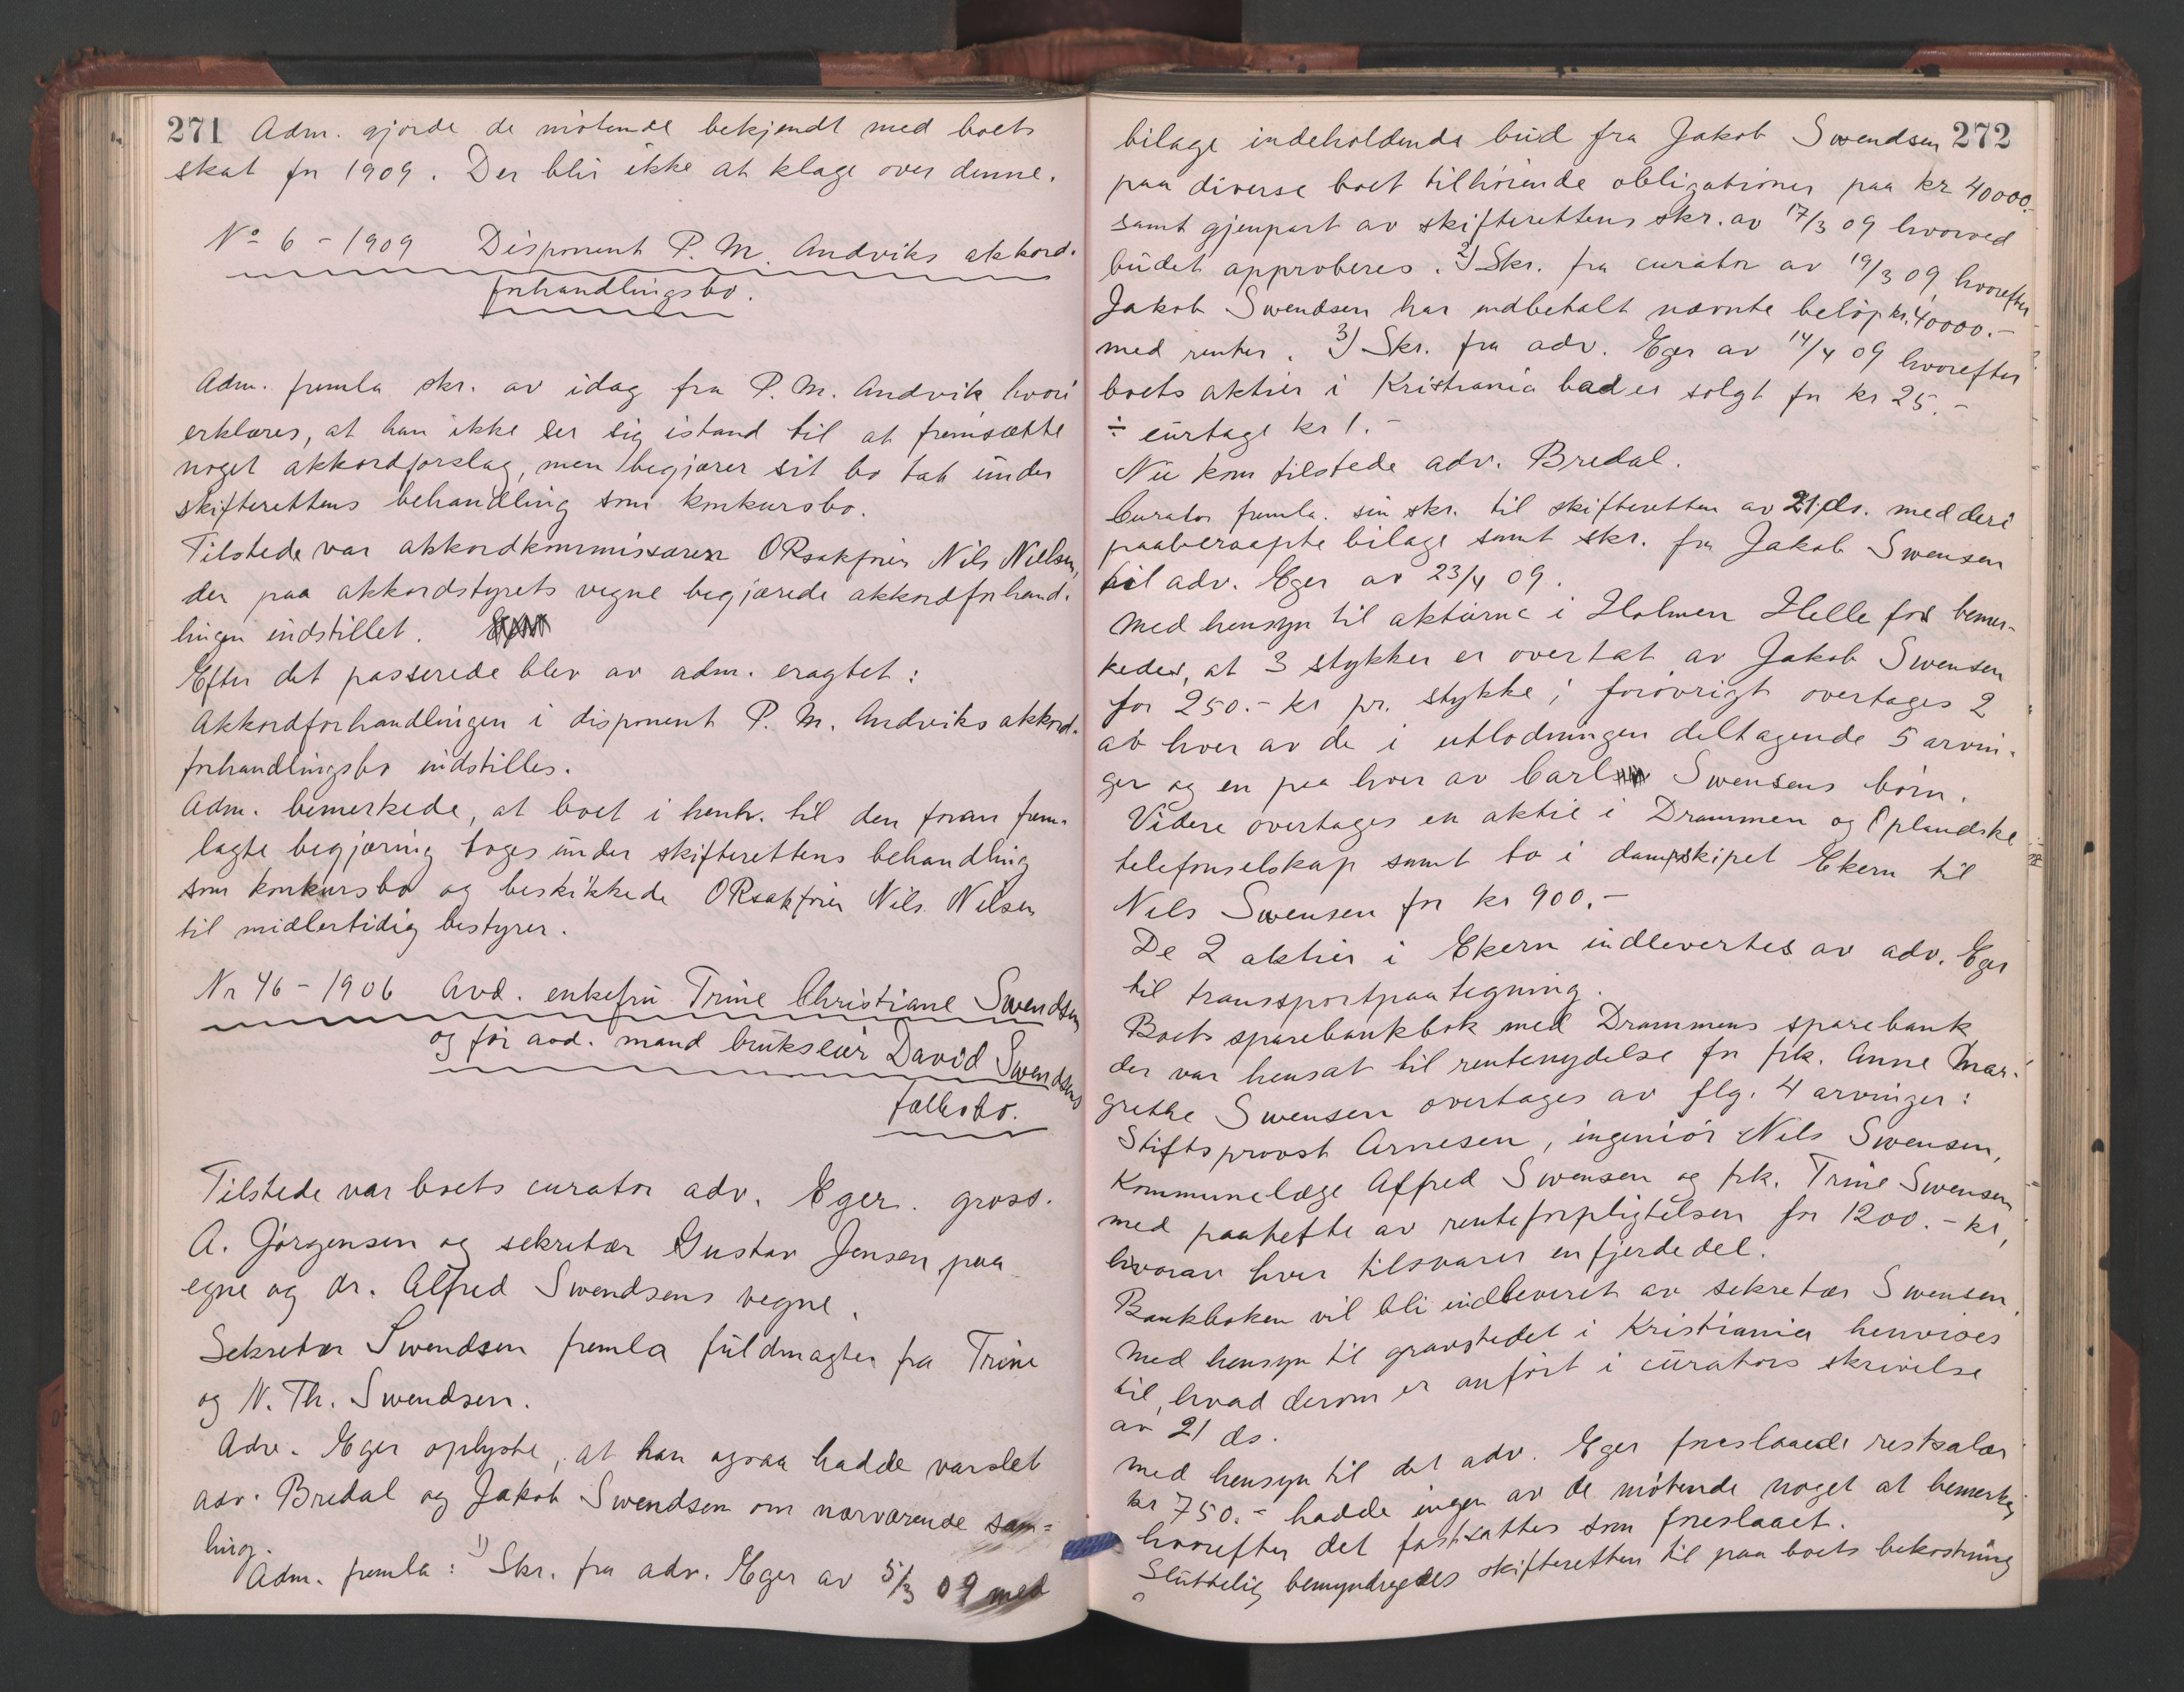 271 Adm. gjorde de møtende bekjendt med boets
skat for 1909. Der blir ikke at klage over denne.
No 6 - 1909 Disponent P. M. Andviks akkord-
forhandlingsbo.
Adm. fremla skr. av idag fra P. M. Andvik hvori
erklæres, at han ikke ser sig istand til at fremsætte
noget akkordforslag, men begjærer sit bo tat under
skifterettens behandling som konkursbo.
Tilstede var akkordkommissæren ORsakfører Nils Nilsen,
der paa akkordstyrets vegne begjærede akkordforhand-
lingen indstillet.
Efter det passerede blev av adm. eragtet:
Akkordforhandlingen i disponent P. M. Andviks akkord-
forhandlingsbo indstilles.
Adm. bemerkede, at boet i henh. til den foran frem-
lagte begjæring toges under skifterettens behandling
som konkursbo og beskikkede ORsakfører Nils Nilsen
til midlertidig bestyrer.
Nr 46 - 1906 Avd. enkefru Trine Christiane Swendsen
og før avd. mand brukseier David Swendsens
fællesbo.
Tilstede var boets curator adv. Eger. gross.
A. Jørgensen og sekretær Gustav Jensen paa
egne og dr. Alfred Swendsens vegne.
Sekretær Swendsen fremla fuldmagter fra Trine
og N. Th. Swendsen.
Adv. Eger oplyste, at han ogsaa hadde varslet
adv. Bredal og Jakob Swendsen om nærværende sam-
ling.
Adm. fremla: 1) Skr. fra adv. Eger av 5/3 09 med
bilage indeholdende bud fra Jakob Swendsen 272
paa diverse boet tilhørende obligationer paa kr 40000.-
samt gjenpart av skifterettens skr. av 17/3 09 hvorved
budet approberes. 2) Skr. fra curator av 19/3 09, hvorefter
Jakob Swendsen har indbetalt nævnte beløp kr. 40000.-
med renter. 3) Skr. fra adv. Eger av 14/4 09 hvorefter
boets aktier i Kristiania bad er solgt for kr 25.-
÷ curtage kr 1.-
Nu kom tilstede adv. Bredal.
Curator fremla sin skr. til skifteretten av 21 ds. med deri
paaberaapte bilage samt skr. fra Jakob Swensen
til adv. Eger av 23/4 09.
Med hensyn til aktierne i Holmen Helle fos bemer-
kedes, at 3 stykker er overtat av Jakob Swensen
for 250.- kr pr. stykke; forøvrigt overtages 2
av hver av de i utlodningen deltagende 5 arvin-
ger og en paa hver av Carl Swensens børn.
Videre overtages en aktie i Drammen og Oplandske
telefonselskap samt to i dampskipet Ekern til
Nils Swensen for kr 900.-
De 2 aktier i Ekern indlevertes av adv. Eger
til transportpaategning.
Boets sparebankbok med Drammens sparebank
der var hensat til rentenydelse for frk. Anne Mar-
grethe Swensen overtages av flg. 4 arvinger:
Stiftsprovst Arnesen, ingeniør Nils Swensen,
Kommunelæge Alfred Swensen og frk. Trine Swensen
med paahefte av renteforpligtelsen for 1200.- kr,
hvorav hver tilsvarer en fjerdedel.
Bankboken vil bli indleveret av sekretær Swensen.
Med hensyn til gravstedet i Kristiania henvises
til, hvad derom er anført i curators skrivelse
av 21 ds.
Med hensyn til det adv. Eger foreslaaede restsalær
kr 750.- hadde ingen av de møtende noget at bemerke,
hvorefter det fastsattes som foreslaaet.
Sluttelig bemyndigedes skifteretten til paa boets bekostning